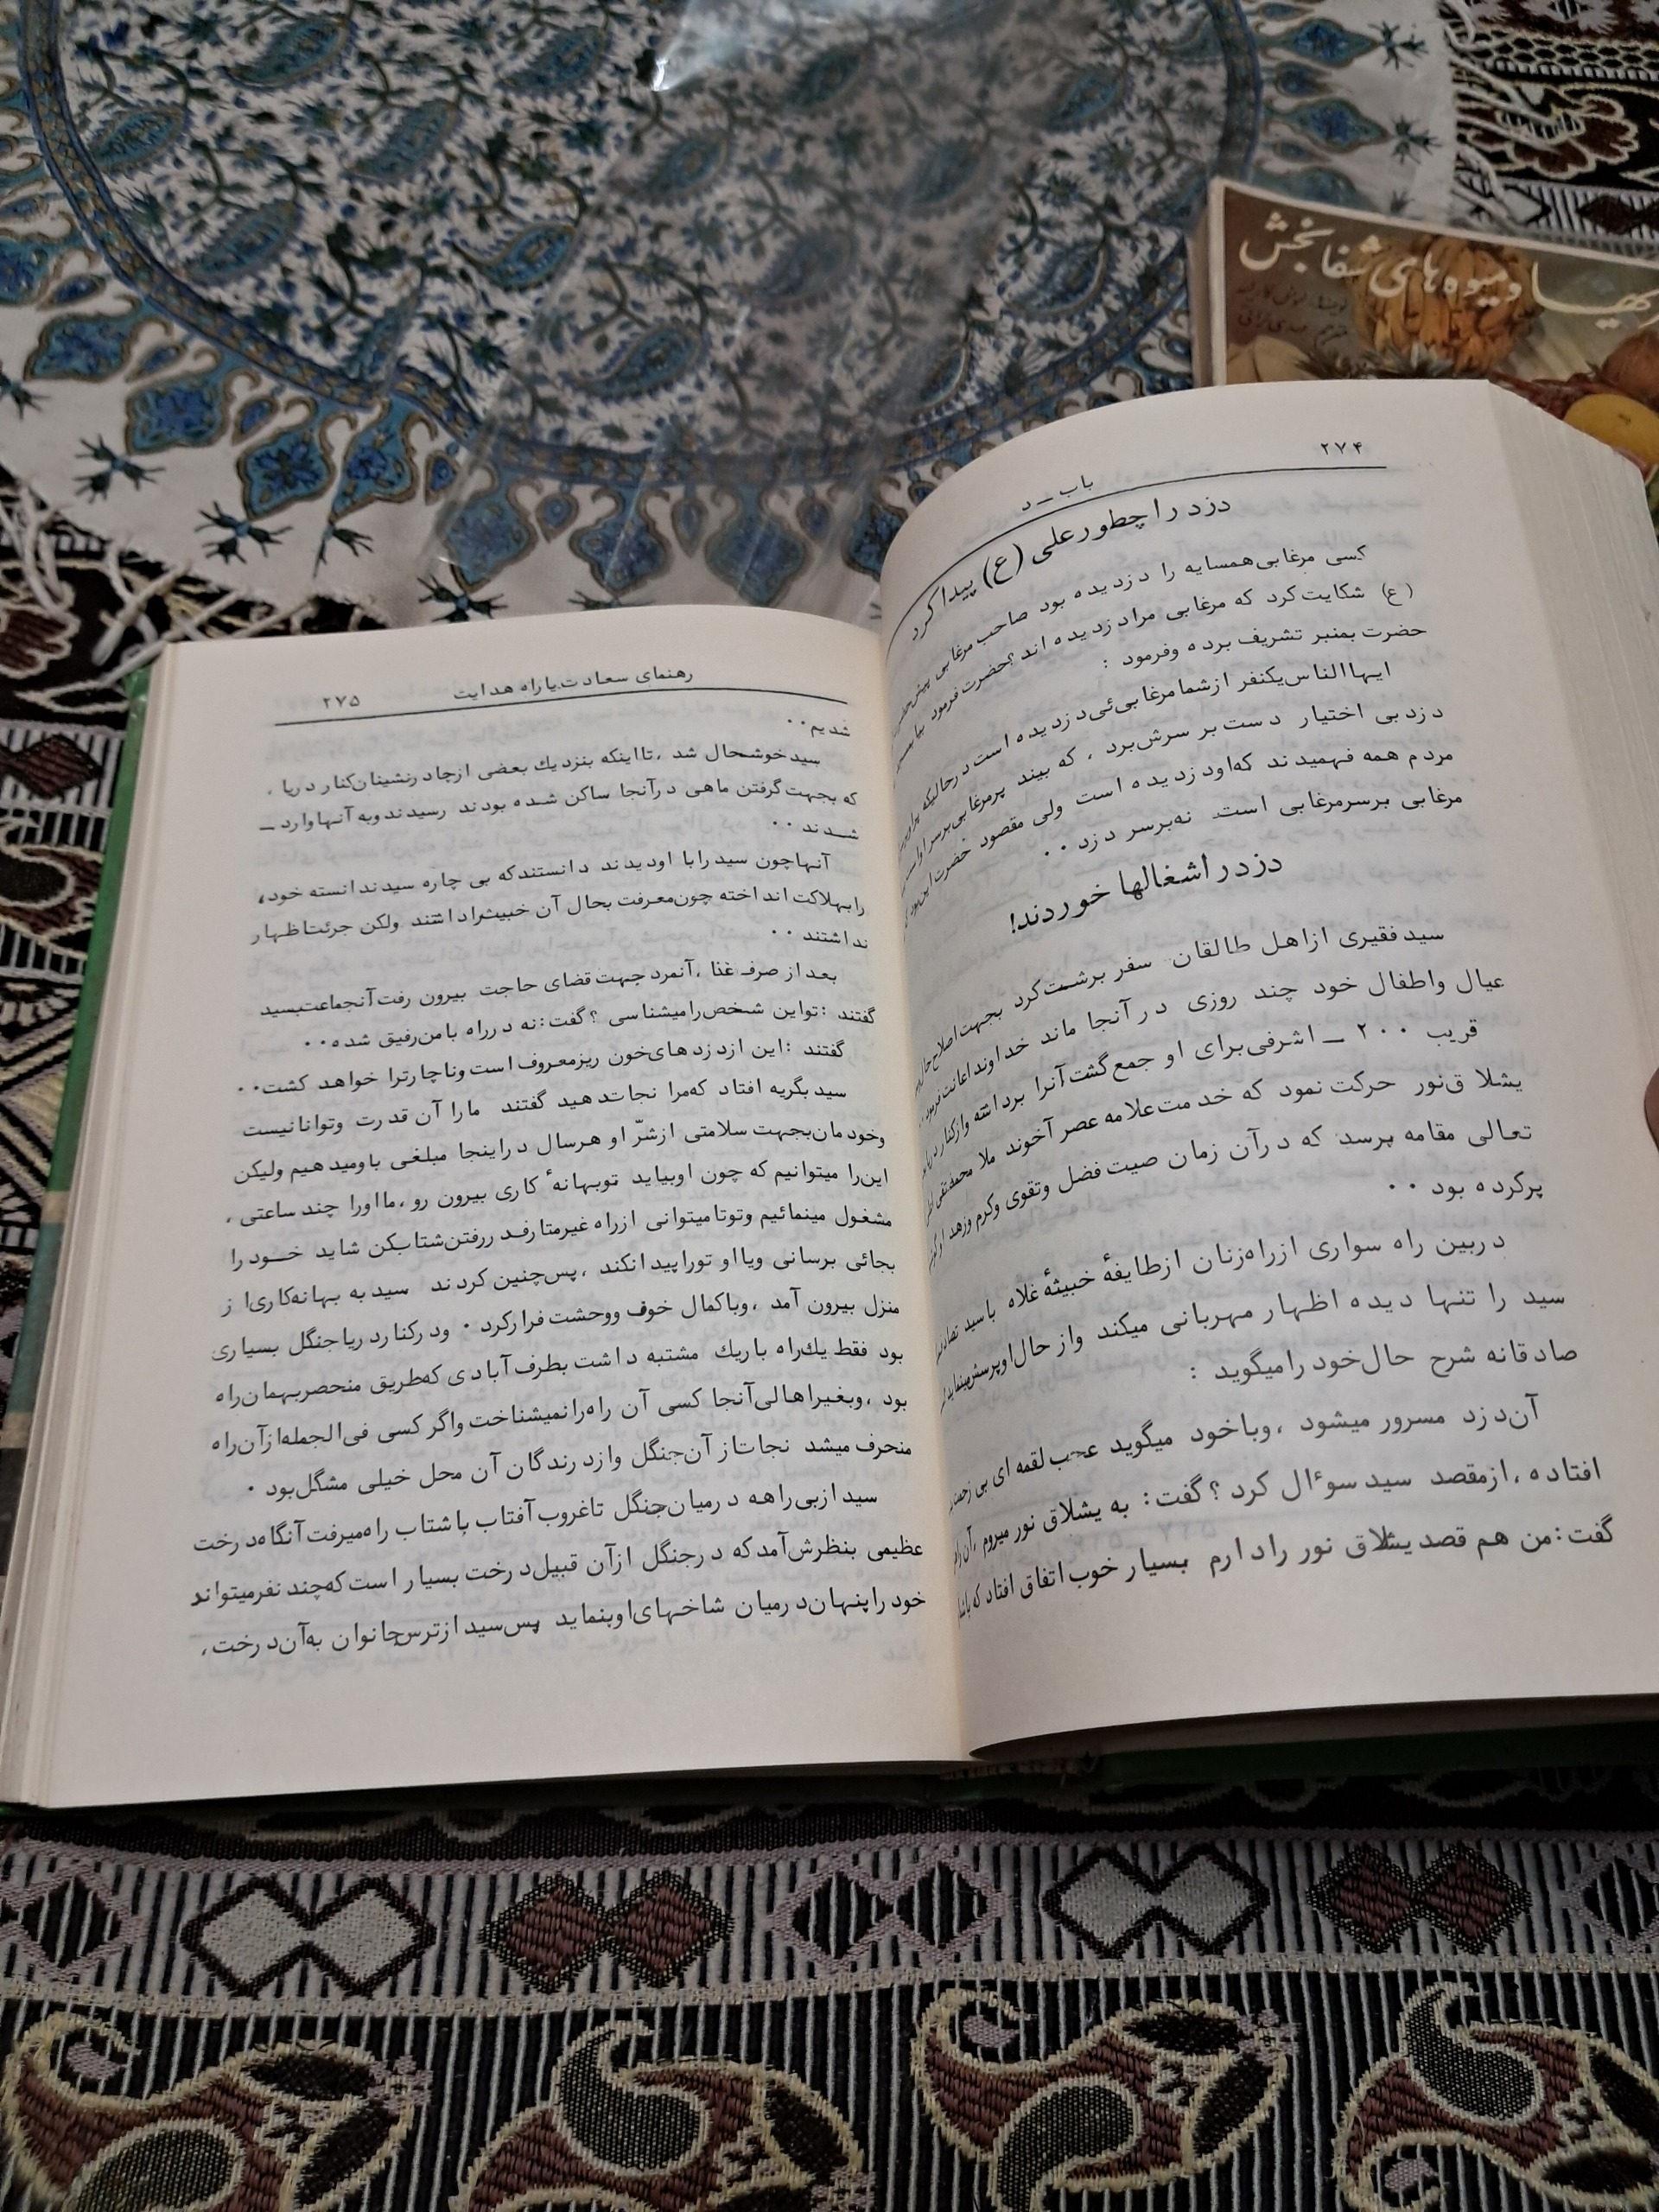 یها و میوه‌های شفابخش
مترجم مهدی نراقی
۲۷۴
باب ــ د
دزد را چطور علی (ع) پیدا کرد
کسی مرغابی همسایه را دزدیده بود صاحب مرغابی پیش
(ع) شکایت کرد که مرغابی مرا دزدیده اند ؟ حضرت فرمود
حضرت بمنبر تشریف برده وفرمود :
ایها الناس یکنفر از شما مرغابی ئی دزدیده است در حالیکه
دزد بی اختیار دست بر سرش برد ، که بیند پر مرغابی بر سر
مردم همه فهمیدند که او دزدیده است ولی مقصود حضرت این بود
مرغابی بر سر مرغابی است نه بر سر دزد ۰۰
دزد را شغالها خوردند!
سید فقیری از اهل طالقان سفر برشت کرد بجهت اصلاح حال
عیال واطفال خود چند روزی در آنجا ماند خداوند اعانت فرمود
قریب ۲۰۰ ــ اشرفی برای او جمع گشت آنرا برداشته واز کنار دریا
یشلاق نور حرکت نمود که خدمت علامه عصر آخوند ملا محمد تقی
تعالی مقامه برسد که در آن زمان صیت فضل وتقوی وکرم وزهد او
پر کرده بود ۰۰
در بین راه سواری از راه زنان از طایفهٔ خبیثهٔ غلاه با سید
سید را تنها دیده اظهار مهربانی میکند واز حال او پرسش مینماید
صادقانه شرح حال خود را میگوید :
آن دزد مسرور میشود ، وباخود میگوید عجب لقمه ای بی زحمت
افتاده ، از مقصد سید سوءال کرد ؟ گفت : به یشلاق نور میروم ،
گفت : من هم قصد یشلاق نور را دارم بسیار خوب اتفاق افتاد که
رهنمای سعادت یا راه هدایت
۲۷۵
شدیم ۰۰
سید خوشحال شد ، تا اینکه بنزدیك بعضی از چادرنشینان کنار دریا ،
که بجهت گرفتن ماهی در آنجا ساکن شده بودند رسیدند وبه آنها وارد ــ
شـدند ۰۰
آنها چون سید را با او دیدند دانستند که بی چاره سید ندانسته خود ،
را بهلاکت انداخته چون معرفت بحال آن خبیث را داشتند ولکن جرئت اظهار
نداشتند ۰۰
بعد از صرف غذا ، آنمرد جهت قضای حاجت بیرون رفت آنجماعت بسید
گفتند : تو این شخص را میشناسی ؟ گفت : نه در راه با من رفیق شده ۰۰
گفتند : این از دزدهای خون ریز معروف است وناچار ترا خواهد کشت ۰۰
سید بگریه افتاد که مرا نجات دهید گفتند ما را آن قدرت وتوانا نیست
وخودمان بجهت سلامتی از شرّ او هر سال در اینجا مبلغی باو میدهیم ولیکن
این را میتوانیم که چون او بیاید تو بهانهٔ کاری بیرون رو ، ما او را چند ساعتی ،
مشغول مینمائیم وتو تا میتوانی از راه غیر متارف در رفتن شتاب کن شاید خـود را
بجائی برسانی ویا او تو را پیدا نکند ، پس چنین کردند سید به بهانه کاری از
منزل بیرون آمد ، وبا کمال خوف ووحشت فرار کرد ۰ ودر کنار دریا جنگل بسیاری
بود فقط یك راه باریك مشتبه داشت بطرف آبادی که طریق منحصر بهمان راه
بود ، وبغیر اهالی آنجا کسی آن راه را نمیشناخت واگر کسی فی الجمله از آن راه
منحرف میشد نجات از آن جنگل واز درندگان آن محل خیلی مشگل بود ۰
سید از بی راهه در میان جنگل تا غروب آفتاب باشتاب راه میرفت آنگاه درخت
عظیمی بنظرش آمد که در جنگل از آن قبیل درخت بسیار است که چند نفر میتواند
خود را پنهان در میان شاخهای او بنماید پس سید از ترس جانوان به آن درخت ،